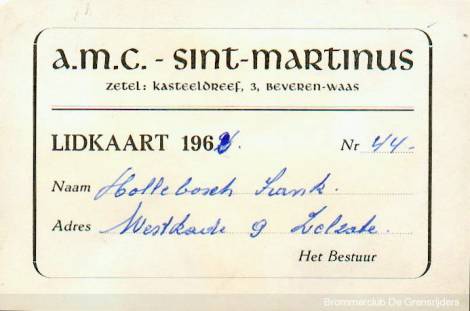 a.m.c. - sint-martinus
zetel: kasteeldreef, 3, beveren-waas
LIDKAART 196
Nr 44-
Naam Hollebosch Frank.
Adres Westkade 9 Zelzate.
Het Bestuur
Brommerclub De Grensrijders